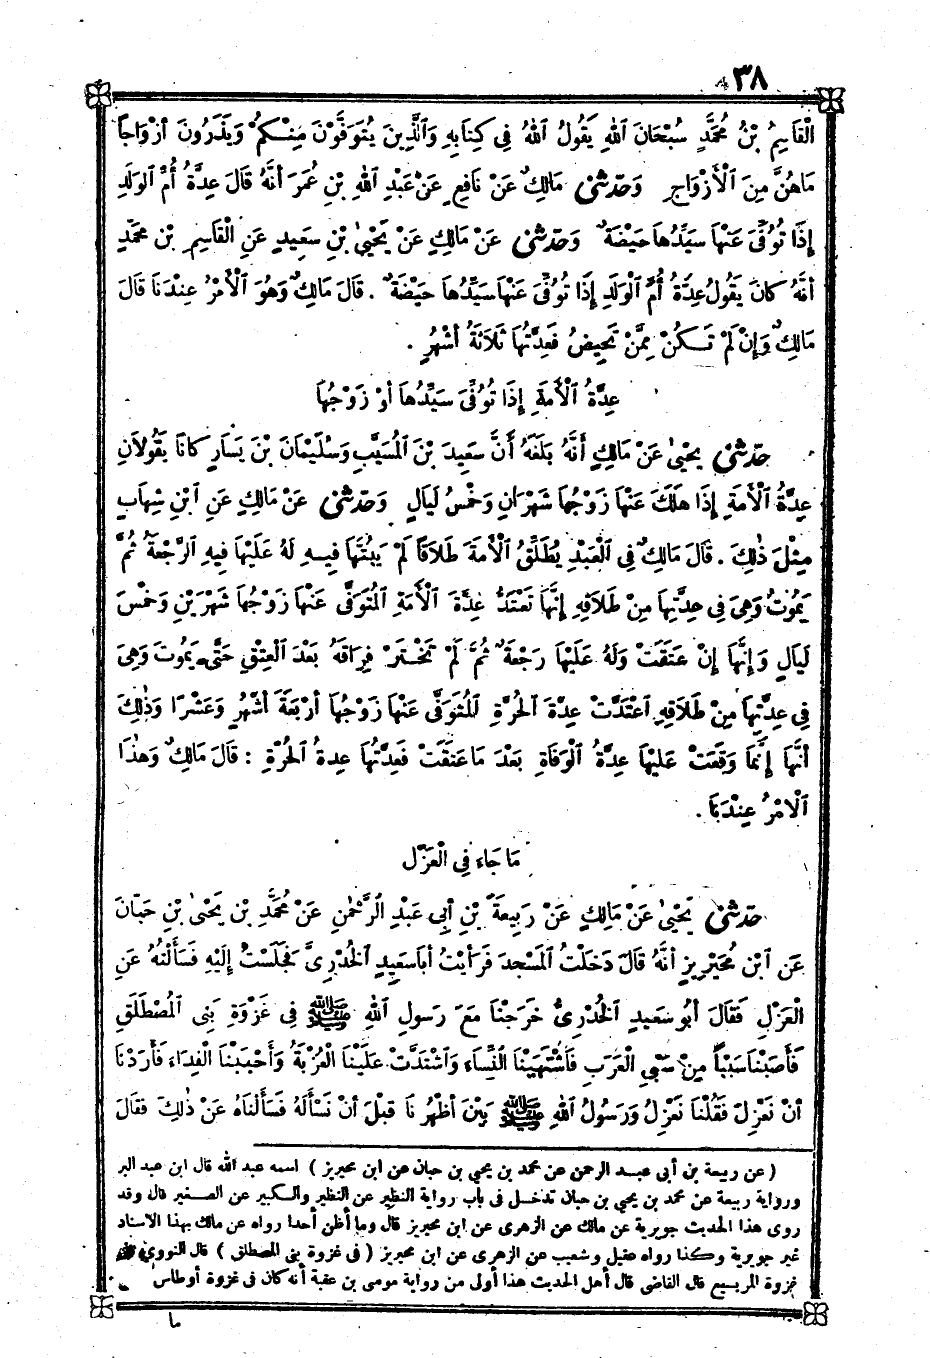 ٣٨
الْقَاسِمُ بْنُ مُحَمَّدٍ سُبْحَانَ اللهِ يَقُولُ اللهُ فِي كِتَابِهِ وَالَّذِينَ يُتَوَفَّوْنَ مِنْكُمْ وَيَذَرُونَ أَزْوَاجًا
مَا هُنَّ مِنَ الْأَزْوَاجِ وَحَدَّثَنِي مَالِكٌ عَنْ نَافِعٍ عَنْ عَبْدِ اللهِ بْنِ عُمَرَ أَنَّهُ قَالَ عِدَّةُ أُمِّ الْوَلَدِ
إِذَا تُوُفِّيَ عَنْهَا سَيِّدُهَا حَيْضَةٌ وَحَدَّثَنِي عَنْ مَالِكٍ عَنْ يَحْيَىٰ بْنِ سَعِيدٍ عَنِ الْقَاسِمِ بْنِ مُحَمَّدٍ
أَنَّهُ كَانَ يَقُولُ عِدَّةُ أُمِّ الْوَلَدِ إِذَا تُوُفِّيَ عَنْهَا سَيِّدُهَا حَيْضَةٌ . قَالَ مَالِكٌ وَهُوَ الْأَمْرُ عِنْدَنَا قَالَ
مَالِكٌ وَإِنْ لَمْ تَكُنْ مِمَّنْ تَحِيضُ فَعِدَّتُهَا ثَلَاثَةُ أَشْهُرٍ .
عِدَّةُ الْأَمَةِ إِذَا تُوُفِّيَ سَيِّدُهَا أَوْ زَوْجُهَا
حَدَّثَنِي يَحْيَىٰ عَنْ مَالِكٍ أَنَّهُ بَلَغَهُ أَنَّ سَعِيدَ بْنَ الْمُسَيَّبِ وَسُلَيْمَانَ بْنَ يَسَارٍ كَانَا يَقُولَانِ
عِدَّةُ الْأَمَةِ إِذَا هَلَكَ عَنْهَا زَوْجُهَا شَهْرَانِ وَخَمْسُ لَيَالٍ وَحَدَّثَنِي عَنْ مَالِكٍ عَنِ ابْنِ شِهَابٍ
مِثْلَ ذَٰلِكَ . قَالَ مَالِكٌ فِي الْعَبْدِ يُطَلِّقُ الْأَمَةَ طَلَاقًا لَمْ يَبُتَّهَا فِيهِ لَهُ عَلَيْهَا فِيهِ الرَّجْعَةُ ثُمَّ
يَمُوتُ وَهِيَ فِي عِدَّتِهَا مِنْ طَلَاقِهِ إِنَّهَا تَعْتَدُّ عِدَّةَ الْأَمَةِ الْمُتَوَفَّىٰ عَنْهَا زَوْجُهَا شَهْرَيْنِ وَخَمْسَ
لَيَالٍ وَإِنَّهَا إِنْ عَتَقَتْ وَلَهُ عَلَيْهَا رَجْعَةٌ ثُمَّ لَمْ تَخْتَرْ فِرَاقَهُ بَعْدَ الْعِتْقِ حَتَّىٰ يَمُوتَ وَهِيَ
فِي عِدَّتِهَا مِنْ طَلَاقِهِ اعْتَدَّتْ عِدَّةَ الْحُرَّةِ الْمُتَوَفَّىٰ عَنْهَا زَوْجُهَا أَرْبَعَةَ أَشْهُرٍ وَعَشْرًا وَذَٰلِكَ
أَنَّهَا إِنَّمَا وَقَعَتْ عَلَيْهَا عِدَّةُ الْوَفَاةِ بَعْدَ مَا عَتَقَتْ فَعِدَّتُهَا عِدَّةُ الْحُرَّةِ : قَالَ مَالِكٌ وَهَٰذَا
الْأَمْرُ عِنْدَنَا .
مَا جَاءَ فِي الْعَزْلِ
حَدَّثَنِي يَحْيَىٰ عَنْ مَالِكٍ عَنْ رَبِيعَةَ بْنِ أَبِي عَبْدِ الرَّحْمٰنِ عَنْ مُحَمَّدِ بْنِ يَحْيَىٰ بْنِ حَبَّانَ
عَنِ ابْنِ مُحَيْرِيزٍ أَنَّهُ قَالَ دَخَلْتُ الْمَسْجِدَ فَرَأَيْتُ أَبَا سَعِيدٍ الْخُدْرِيَّ فَجَلَسْتُ إِلَيْهِ فَسَأَلْتُهُ عَنِ
الْعَزْلِ فَقَالَ أَبُو سَعِيدٍ الْخُدْرِيُّ خَرَجْنَا مَعَ رَسُولِ اللهِ ﷺ فِي غَزْوَةِ بَنِي الْمُصْطَلِقِ
فَأَصَبْنَا سَبْيًا مِنْ سَبْيِ الْعَرَبِ فَاشْتَهَيْنَا النِّسَاءَ وَاشْتَدَّتْ عَلَيْنَا الْعُزْبَةُ وَأَحْبَبْنَا الْفِدَاءَ فَأَرَدْنَا
أَنْ نَعْزِلَ فَقُلْنَا نَعْزِلُ وَرَسُولُ اللهِ ﷺ بَيْنَ أَظْهُرِنَا قَبْلَ أَنْ نَسْأَلَهُ فَسَأَلْنَاهُ عَنْ ذَٰلِكَ فَقَالَ
( عن ربيعة بن أبى عبد الرحمن عن محمد بن يحيى بن حبان عن ابن محيريز ) اسمه عبد الله قال ابن عبد البر
ورواية ربيعة عن محمد بن يحيى بن حبان تدخل فى باب رواية النظير عن النظير والكبير عن الصغير قال وقد
روى هذا الحديث جويرية عن مالك عن الزهرى عن ابن محيريز قال وما أظن أحدا رواه عن مالك بهذا الاسناد
غير جويرية وكذا رواه عقيل وشعيب عن الزهرى عن ابن محيريز ( فى غزوة بنى المصطلق ) قال النووى هى
غزوة المريسيع قال القاضى قال أهل الحديث هذا أولى من رواية موسى بن عقبة أنه كان فى غزوة أوطاس
ما